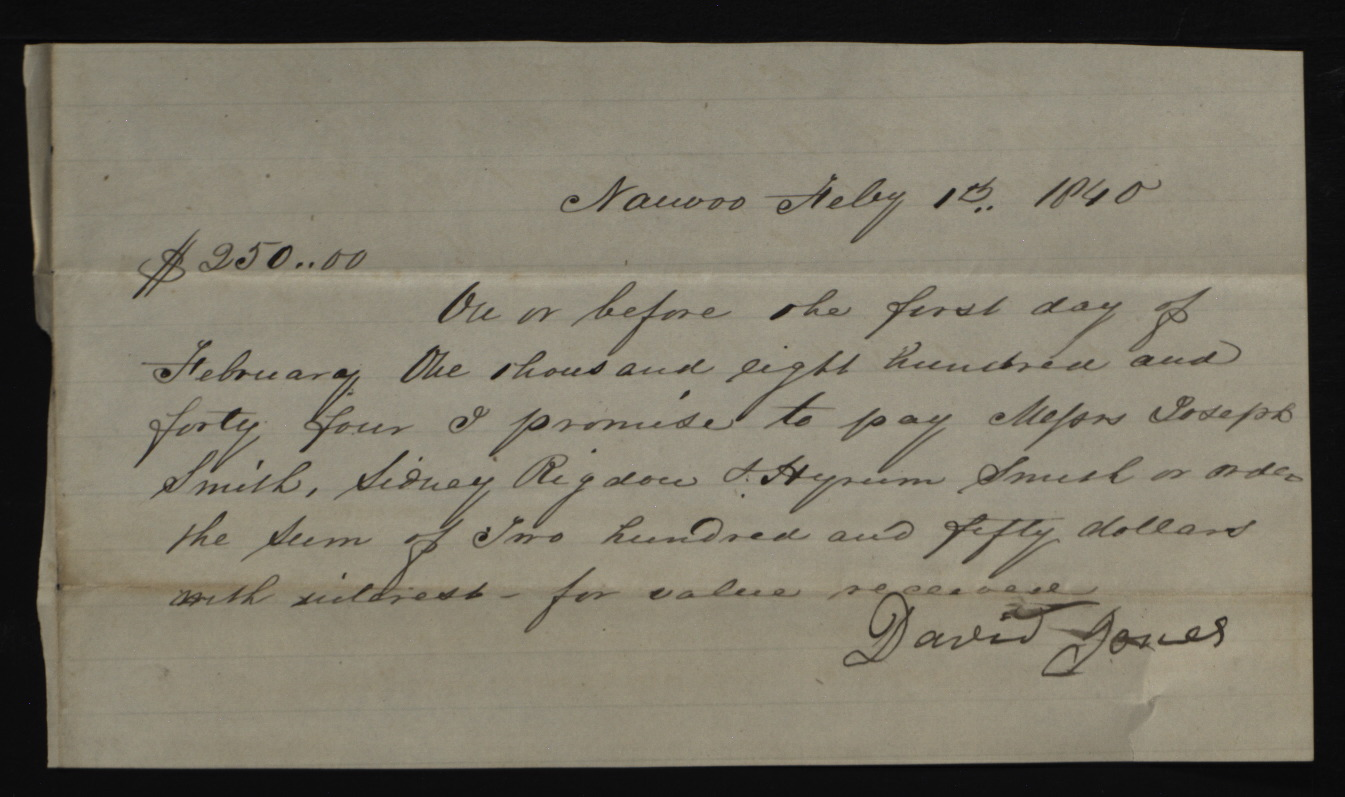 Nauvoo Feby 1st.. 1840
$250..00
On or before the first day of
February One thousand eight hundred and
forty four I promise to pay Messrs Joseph
Smith, Sidney Rigdon & Hyrum Smith or order
the sum of Two hundred and fifty dollars
with interest - for value received
David Jones